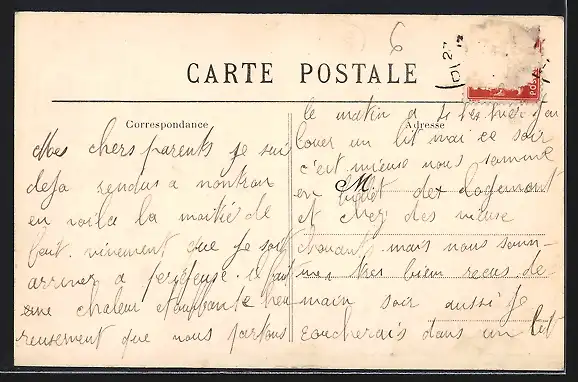 6
CARTE POSTALE
Correspondance
Adresse
Mes chers parents je sui
deja rendus a nontron
en voila la moitié de
fait. vivement que je soit
arriver a perigeuse il fait
une chaleur etouffante heu
reusement que nous partons
le matin a 4 heures j'ai
louer un lit mai ce soir
c'est mieuse nous somme
M
en billet de logement
et chez des vieuse
chouants mais nous somm-
mes tres bien recus de-
main soir aussi je
coucherais dans un lit